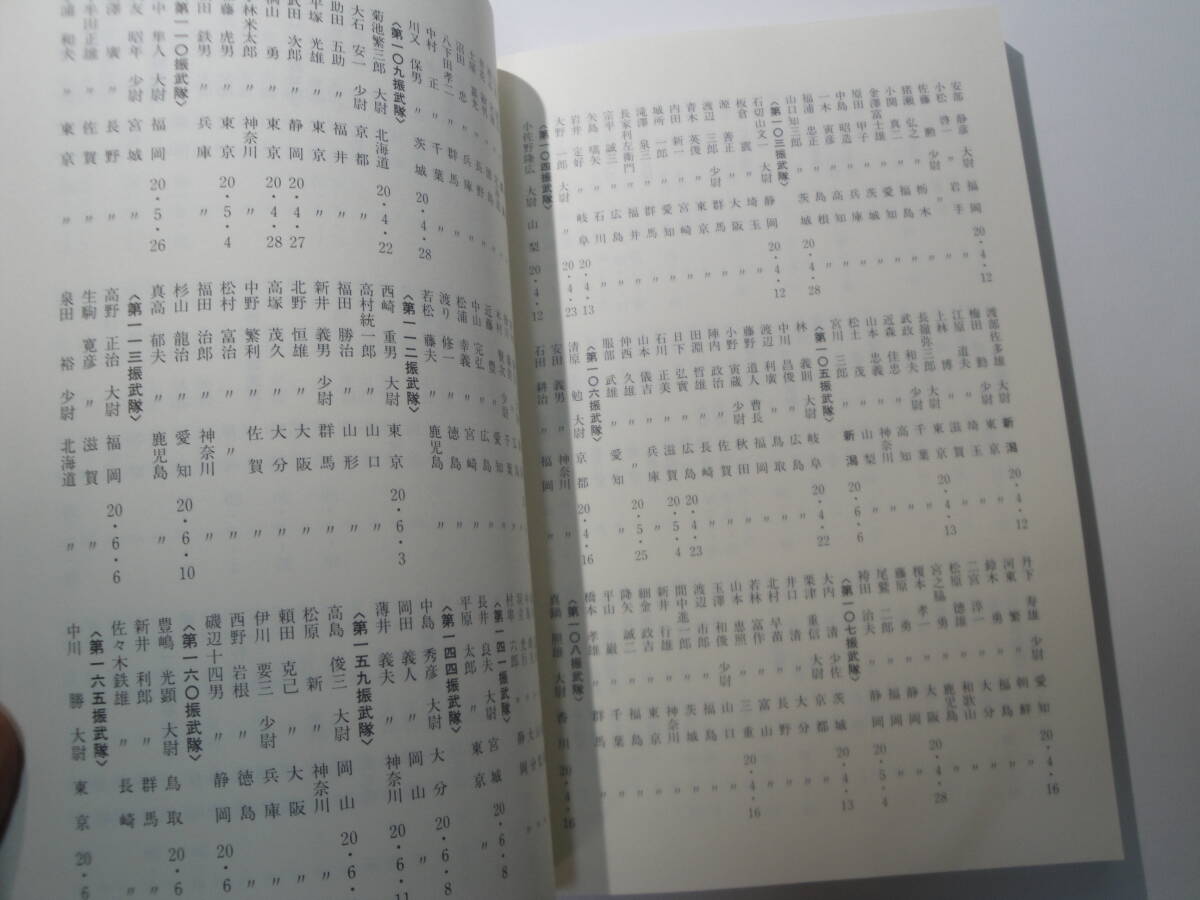 安部 静彦 大尉 福岡 20・4・12
小松 啓一 少尉 岩手 〃
佐藤 勲 少尉 栃木 〃
猪瀬 弘之 〃 福島 〃
小関 真二 〃 愛知 〃
金澤富士雄 〃 茨城 〃
原田 甲子 〃 兵庫 〃
中島 昭造 〃 高知 〃
一木 寅彦 〃 島根 〃
福浦 忠正 〃 茨城 20・4・28
山口知三郎
〈第一〇三振武隊〉
石切山文一 大尉 静岡 20・4・12
板倉 震 〃 埼玉 〃
源 善正 〃 大阪 〃
渡辺 三郎 少尉 群馬 〃
青木 英俊 〃 東京 〃
内田 新一 〃 宮崎 〃
城所 一郎 〃 愛知 〃
滝澤 泉三 〃 群馬 〃
長家利左衛門 〃 福井 〃
宗平 誠三 〃 広島 〃
矢島 〃 石川 〃
岩井 定好 〃 岐阜 20・4・13
大野 一郎 大尉 〃 20・4・23
〈第一〇四振武隊〉
小佐野隆広 大尉 山梨 20・4・12
渡部佐多雄 大尉 新潟 20・4・12
梅田 勤 少尉 東京 〃
江原 道夫 〃 埼玉 〃
上林 博 〃 滋賀 〃
長嶺弥三郎 大尉 東京 20・4・13
武政 和夫 少尉 千葉 〃
近森 佳忠 〃 高知 〃
山本 忠義 〃 神奈川 〃
松土 茂 〃 山梨 〃
宮川 三郎 〃 新潟 20・6・6
〈第一〇五振武隊〉
林 義則 大尉 岐阜 20・4・22
中川 昌俊 〃 広島 〃
渡辺 利廣 〃 鳥取 〃
小野 道人 曹長 福岡 〃
藤野 寅蔵 少尉 秋田 〃
陣内 政治 〃 佐賀 〃
田淵 哲雄 〃 長崎 〃
日下 弘實 〃 広島 20・4・23
石川 正美 〃 滋賀 20・5・4
山本 儀吉 〃 兵庫 〃
仲西 久雄 〃 〃 20・5・25
服部 武雄 〃 愛知 〃
〈第一〇六振武隊〉
清原 勉 大尉 京都 20・4・16
安田 義男 〃 神奈川 〃
石田 耕治 〃 福岡 〃
丹下 寿雄 少尉 愛知 20・4・16
河東 繁 〃 朝鮮 〃
鈴木 勇 〃 福島 〃
二宮 淳一 〃 大分 〃
松原 徳雄 〃 和歌山 〃
宮之脇 勇 〃 鹿児島 〃
榎本 孝一 〃 大阪 20・4・28
藤原 勇 〃 静岡 〃
尾鷲 二郎 〃 福岡 20・5・4
袴田 治夫 〃 静岡 〃
〈第一〇七振武隊〉
大内 清 少佐 茨城 20・4・13
栗津 重信 少尉 京都 〃
井口 清 〃 大分 〃
北村 早苗 〃 長野 〃
若林 富作 〃 富山 〃
山本 恵照 〃 三重 20・4・16
玉澤 和俊 少尉 山口 〃
渡辺 市郎 〃 福島 〃
間中進一郎 〃 茨城 〃
新井 行雄 〃 神奈川 〃
細金 政吉 〃 東京 〃
降矢 誠二 〃 福島 〃
平山 巌 〃 千葉 〃
橋本 孝雄 〃 群馬 〃
〈第一〇八振武隊〉
大尉 香川 20・4・16
中村 正 〃 千葉 〃
川又 保男 〃 茨城 20・4・28
〈第一〇九振武隊〉
菊池繁三郎 大尉 北海道 20・4・22
大石 安一 少尉 京都 〃
助田 五助 〃 福井 〃
平塚 光雄 〃 東京 〃
武田 次郎 〃 静岡 20・4・27
山 勇 〃 東京 20・4・28
林米太郎 〃 神奈川 〃
藤 虎男 〃 東京 20・5・4
田 鉄男 〃 兵庫 〃
第一一〇振武隊〉
中 隼人 大尉 福岡 20・5・26
友 昭年 少尉 宮城 〃
澤 廣 〃 長野 〃
半田正雄 〃 佐賀 〃
浦 和夫 〃 東京 〃
中山 完弘 〃 広島 〃
松浦 幸義 〃 宮崎 〃
渡り 修一 〃 徳島 〃
若松 藤夫 〃 鹿児島 〃
〈第一一二振武隊〉
西崎 重男 大尉 東京 20・6・3
高村統一郎 〃 山口 〃
福田 勝治 〃 山形 〃
新井 義男 少尉 群馬 〃
北野 恒雄 〃 大阪 〃
高塚 茂久 〃 大分 〃
中野 繁利 〃 佐賀 〃
松村 富治 〃 〃 〃
福田 治郎 〃 神奈川 〃
杉山 龍治 〃 愛知 20・6・10
真高 郁夫 〃 鹿児島 〃
〈第一一三振武隊〉
高野 正治 大尉 福岡 20・6・6
生駒 寛彦 〃 滋賀 〃
泉田 裕 少尉 北海道 〃
〈第一四一振武隊〉
長井 良夫 大尉 宮城 20・6・8
平原 太郎 〃 東京 〃
〈第一四四振武隊〉
中島 秀彦 大尉 大分 20・6・8
岡田 義人 〃 岡山 〃
薄井 義夫 〃 神奈川 20・6・11
〈第一五九振武隊〉
高島 俊三 大尉 岡山 20・6・
松原 新 〃 神奈川 〃
頼田 克己 〃 大阪 〃
伊川 要三 少尉 兵庫 〃
西野 岩根 〃 徳島 〃
磯辺十四男 〃 静岡 20・6
〈第一六〇振武隊〉
豊嶋 光顕 大尉 鳥取 20・6
新井 利郎 〃 群馬 〃
佐々木鉄雄 〃 長崎 〃
〈第一六五振武隊〉
中川 勝 大尉 東京 20・6